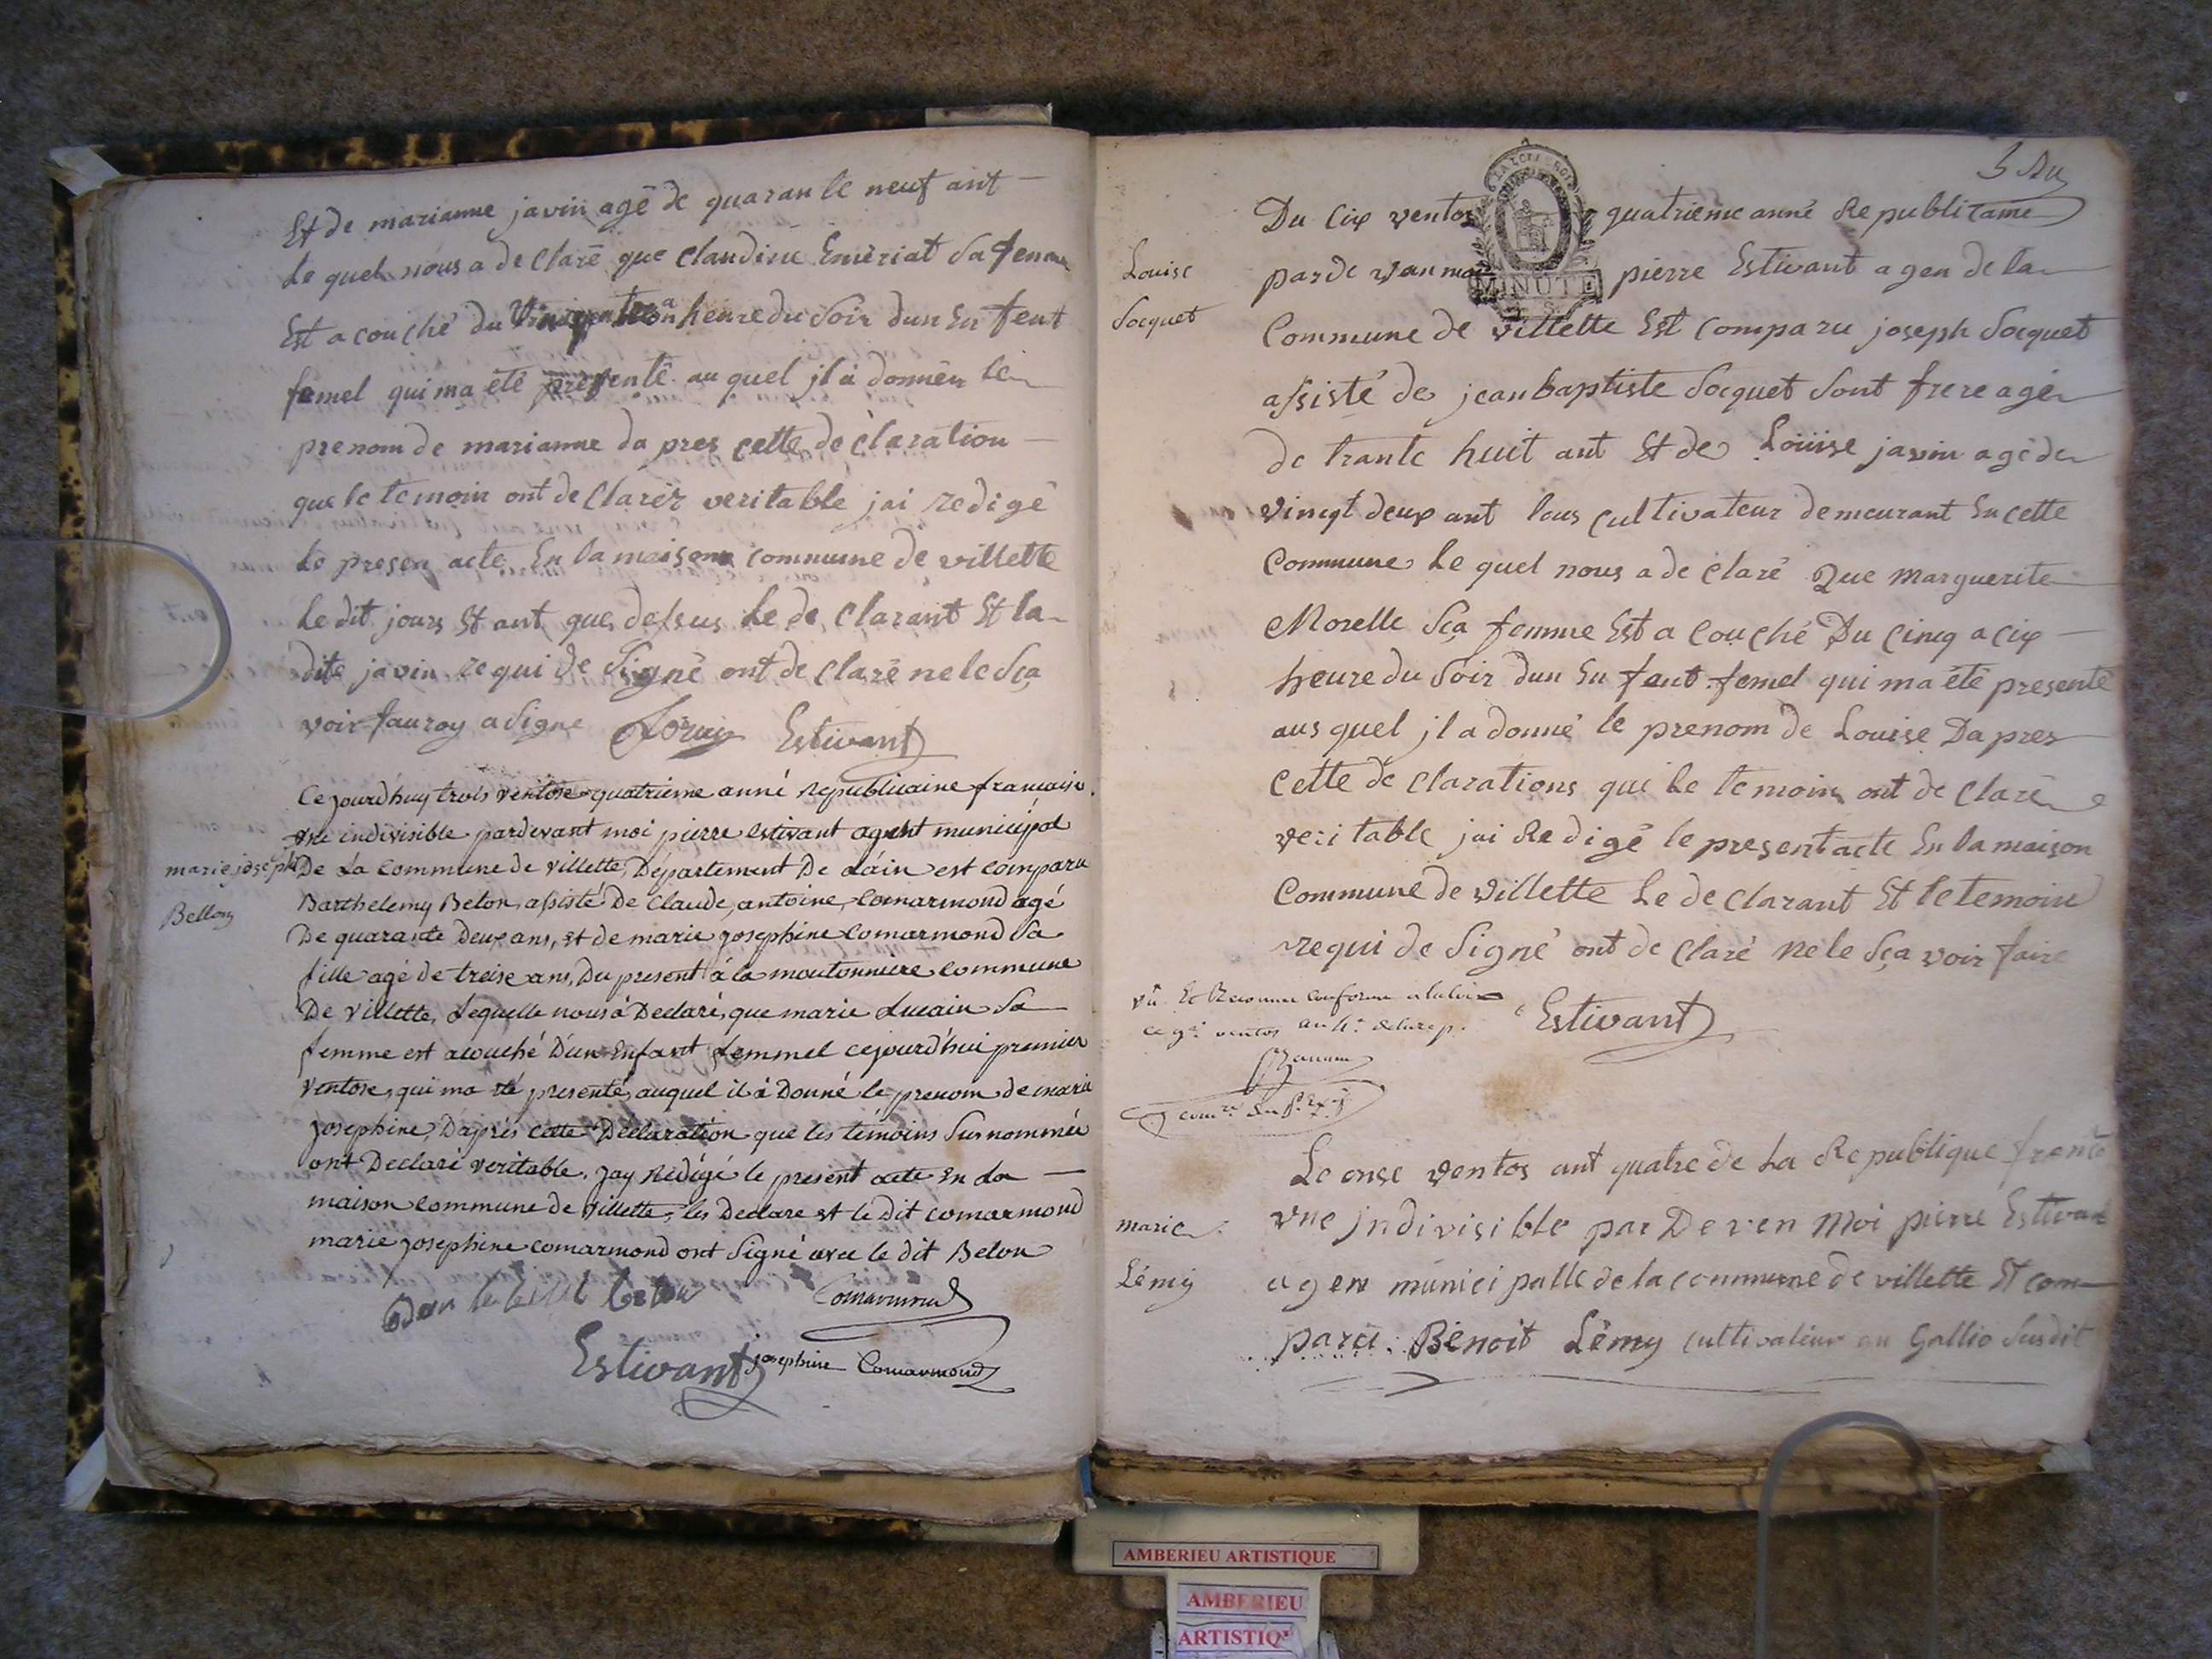 Et de marianne javin agé de quarante neuf ant
Le quel nous a de claré que claudine Emèriat Sa femme
Est a couché du heure du Soir dun En fent
femel qui ma été présenté au quel jl a donnéu le
prenom de marianne da pres cette de claration
que le temoin ont de clarér veritable jai redigé
le presen acte En la maison commune de villette
Le dit jours Et ant que dessus Le de clarant Et la
dite javin requi de Signé ont de claré ne le Sça
voir fauroy a Signe Estivant
Ce jourd'huy trois ventôse quatrieme anné Republicaine française
une indivisible pardevant moi pierre estivant agent municipal
marie joseph De La commune de villette, Département De Lain est comparu
Bellon
Barthelemy Beton, assisté De Claude, antoine, Comarmond agé
De quarante Deux ans, et de marie josephine Comarmond Sa
fille agé de treise ans, Du present à la moutonniere commune
De villette, Lequelle nous à Declaré, que marie Lucain Sa
femme est acouché D'un Enfant femmel cejourd'hui premier
Ventose, qui ma été presenté, auquel il à Donné le prenom de marie
Josephine, D'après cette Déclaration que les témoins Surnommée
ont Declaré veritable. Jay Rédigé le present acte En La
maison commune de villette, les Declare et le Dit comarmond
marie josephine comarmond ont Signé avec le dit Beton
Comarmond
Estivant josephine Comarmond
5 Du
Du Cix ventos quatrieme anné Republicaine
Louise
Socquet
par de van moi pierre Estivant agen de la
Commune de villette Est comparu joseph Socquet
assisté de jean baptiste Socquet Sont frere agé
de trante huit ant Et de Loüise javin agé de
vingt deux ant tous cultivateur demeurant En cette
Commune Le quel nous a de claré Que Marguerite
Morelle Sça femme Est a couché Du cinq a cix
heure du Soir dun En fent femel qui ma été presenté
aus quel jl a donné le prenom de Louise Da pres
cette de clarations que Le temoin ont de claré
veritable jai Redigé le present acte En la maison
Commune de villette Le de clarant Et le temoin
requi de Signé ont de claré ne le Sça voir faire
vû Et Reconnu conforme a la loi
ce 9e ventos an 4e de la rep.
Estivant
Le onse ventos ant quatre de La Republique
marie
Lémy
vne jndivisible par De ven Moi pierre Estivant
agen municipalle de la commune de villette Et com
paru Benoit Lémy cultivateur au Gallio Susdit
MINUTE
AMBERIEU ARTISTIQUE
AMBERIEU
ARTISTIQ